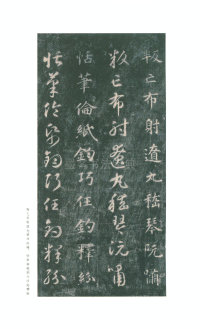 叛亡布射遼丸嵇琴阮嘯
叛亡布射遼丸嵇琴阮嘯
恬筆倫紙鈞巧任釣釋紛
恬筆倫紙鈞巧任釣釋紛